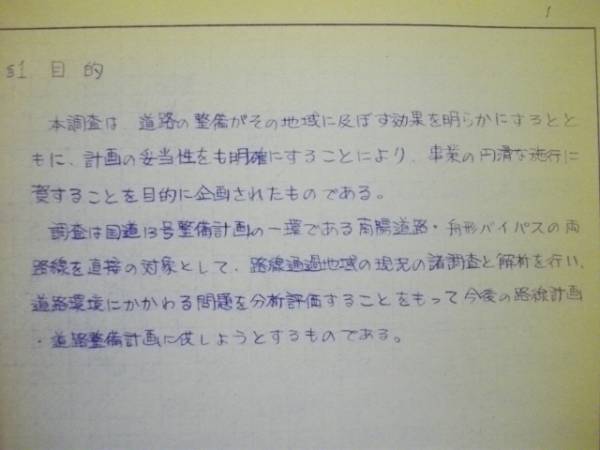 1
§1 目的
本調査は、道路の整備がその地域に及ぼす効果を明らかにするとと
もに、計画の妥当性をも明確にすることにより、事業の円滑な施行に
資することを目的に企画されたものである。
調査は国道13号整備計画の一環である南陽道路・舟形バイパスの両
路線を直接の対象として、路線通過地域の現況の諸調査と解析を行い、
道路環境にかかわる問題を分析評価することをもって今後の路線計画
・道路整備計画に供しようとするものである。